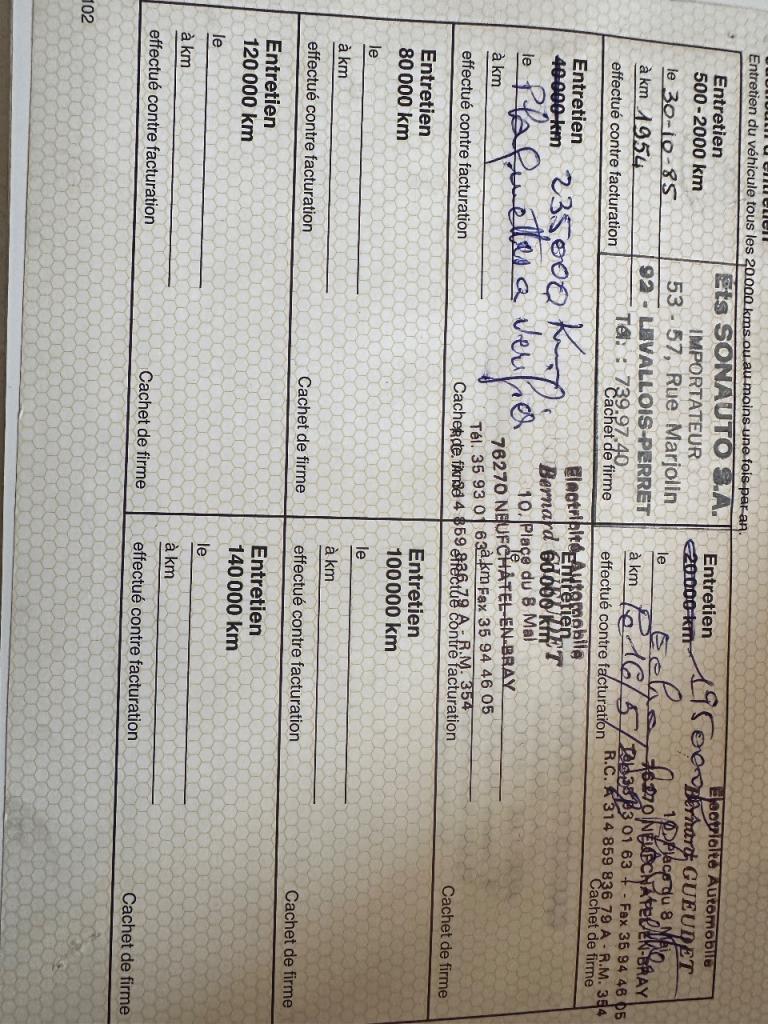 Entretien du véhicule tous les 20 000 kms ou au moins une fois par an.
Entretien
500-2000 km
le 30-10-85
à km 1954
effectué contre facturation
Ets SONAUTO S.A.
IMPORTATEUR
53 - 57, Rue Marjolin
92 - LEVALLOIS-PERRET
Tél. : 739.97.40
Cachet de firme
Entretien
20 000 km 195000
le
à km le 16/5/
effectué contre facturation
Electricité Automobile
Bernard GUEUDET
10, Place du 8 Mai
76270 NEUFCHATEL-EN-BRAY
Tél. 35 93 01 63 + - Fax 35 94 46 05
R.C. A 314 859 836 79 A - R.M. 354
Cachet de firme
Entretien
40 000 km 235,000 Km
le Plaquettes a verifier
à km
effectué contre facturation
Cachet de firme
Electricité Automobile
Bernard GUEUDET
10, Place du 8 Mai
76270 NEUFCHATEL-EN-BRAY
Tél. 35 93 01 63 Fax 35 94 46 05
859 836 79 A - R.M. 354
Entretien
60 000 km
le
à km
effectué contre facturation
Cachet de firme
Entretien
80 000 km
le
à km
effectué contre facturation
Cachet de firme
Entretien
100 000 km
le
à km
effectué contre facturation
Cachet de firme
Entretien
120 000 km
le
à km
effectué contre facturation
Cachet de firme
Entretien
140 000 km
le
à km
effectué contre facturation
Cachet de firme
102